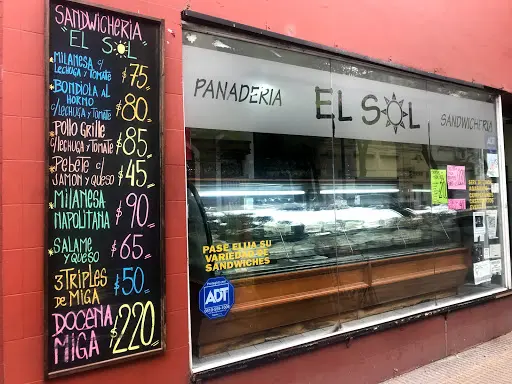 SANDWICHERIA
"EL SOL"
MILANESA C/
LECHUGA Y TOMATE $75
BONDIOLA AL
HORNO
C/LECHUGA Y TOMATE $80
POLLO GRILLE
C/LECHUGA Y TOMATE $85
PEBETE C/
JAMON Y QUESO $45
MILANESA
NAPOLITANA $90
SALAME
Y QUESO $65
3 TRIPLES
DE MIGA $50
DOCENA
MIGA $220
PANADERIA
EL SOL
SANDWICHERIA
PASE ELIJA SU
VARIEDAD DE
SANDWICHES
ADT
ADT